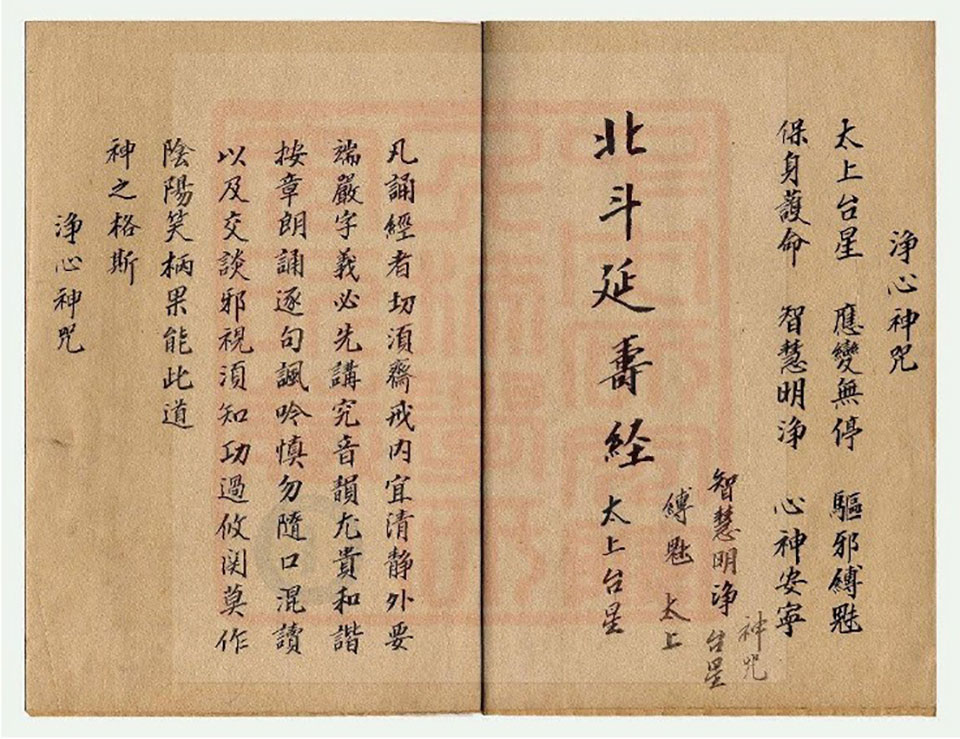 浄心神咒
太上台星 應變無停 驅邪縛鬽
保身護命 智慧明浄 心神安寧
神咒
智慧明浄 台星
縛鬽 太上
北斗延壽经 太上台星
凡誦經者切湏齋戒内宜清静外要
端嚴字義必先講究音韻尤貴和諧
按章朗誦逐句諷吟慎勿隨口混讀
以及交談邪視湏知功過攸関莫作
陰陽笑柄果能此道
神之格斯
浄心神咒